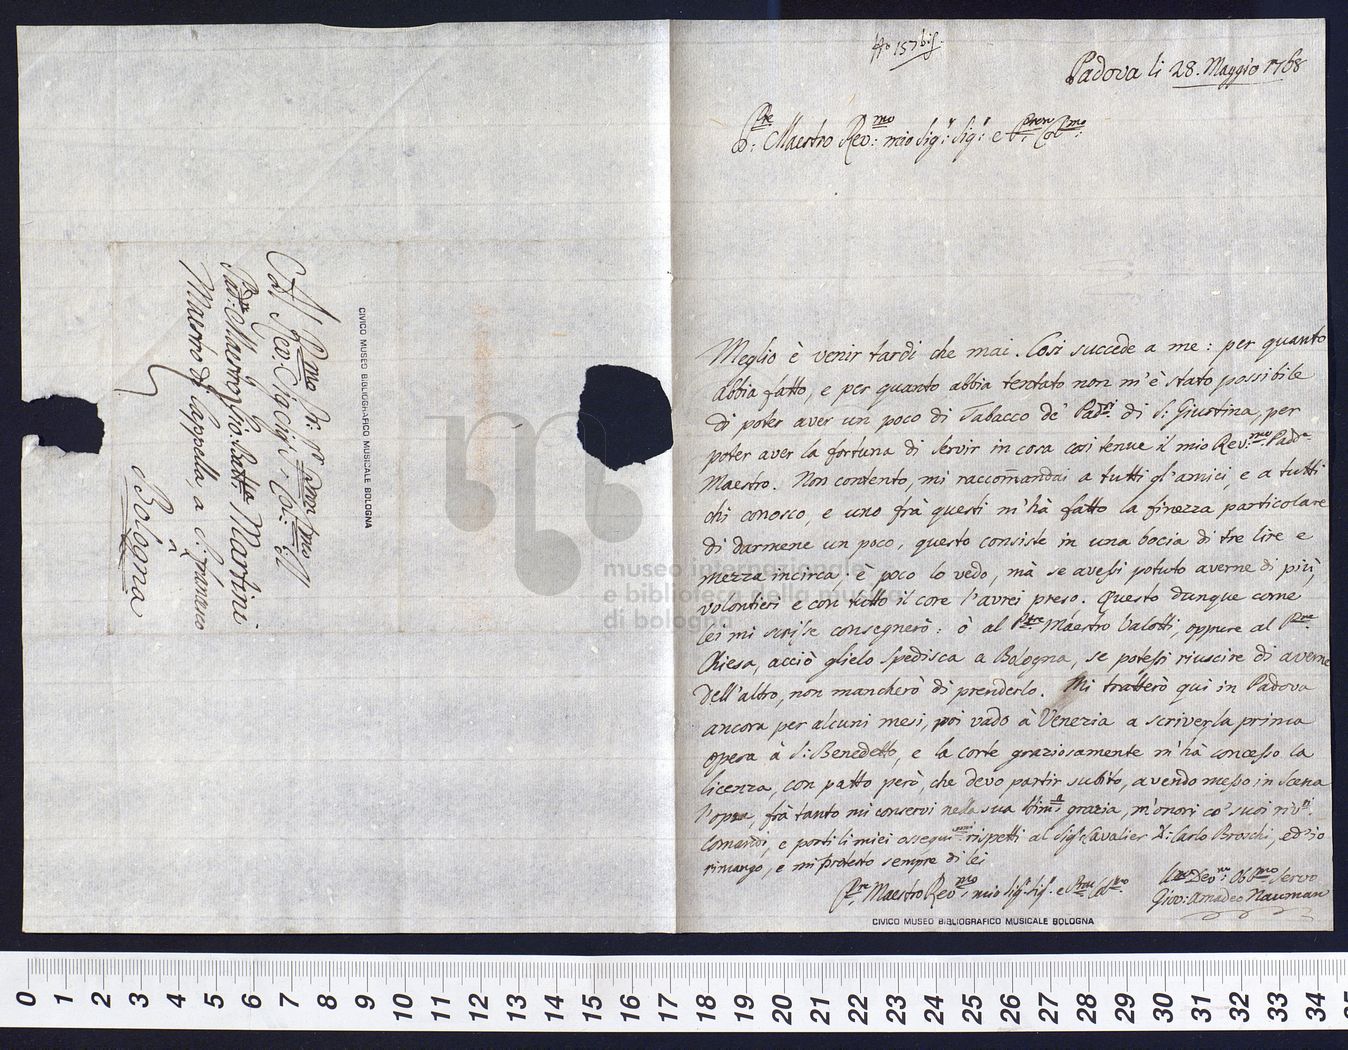 Padova li 28. Maggio 1768
Pre: Maestro Rev:mo mio Sig:r Sig:r e Pron Col:mo
Meglio è venir tardi che mai. Cosi succede a me: per quanto
abbia fatto, e per quanto abbia tentato non m'è stato possibile
di poter aver un poco di Tabacco de' Padri di S: Giustina, per
poter aver la fortuna di servir in cosa cosi tenue il mio Rev:mo Padre
Maestro. Non contento, mi raccomandai a tutti gl'amici, e a tutti
chi conosco, e uno frà questi m'hà fatto la finezza particolare
di darmene un poco, questo consiste in una bocia di tre lire e
mezza incirca. è poco lo vedo, mà se avessi potuto averne di più,
volontieri e con tutto il core l'avrei preso. Questo dunque come
lei mi scrisse consegnerò: ò al Pre Maestro Valotti, oppure al Pre
Chiesa, acciò glielo spedisca a Bologna, se potessi riuscire di averne
dell'altro, non mancherò di prenderlo. Mi tratterò qui in Padova
ancora per alcuni mesi, poi vado à Venezia a scriver la prima
opera à S: Benedetto, e la corte graziosamente m'hà concesso la
licenza, con patto però, che devo partir subito, avendo messo in scena
l'opera, frà tanto mi conservi nella sua grazia, m'onori co' suoi riv:ti
Comandi, e porti li miei rispetti al Sig:r Cavalier D: Carlo Broschi, ed io
rimango, e mi protesto sempre di lei
Pre Maestro Rev:mo mio Sig:r Sig:r e Pron Col:mo
Dev:mo Obb:mo Servo
Giov: Amadeo Nauman
CIVICO MUSEO BIBLIOGRAFICO MUSICALE BOLOGNA
Al
Pad: Maestro Gio: Batta Martini
Maestro di Cappella, a S: Francesco
à
Bologna
CIVICO MUSEO BIBLIOGRAFICO MUSICALE BOLOGNA
museo internazionale
e biblioteca della musica
di bologna
0 1 2 3 4 5 6 7 8 9 10 11 12 13 14 15 16 17 18 19 20 21 22 23 24 25 26 27 28 29 30 31 32 33 34